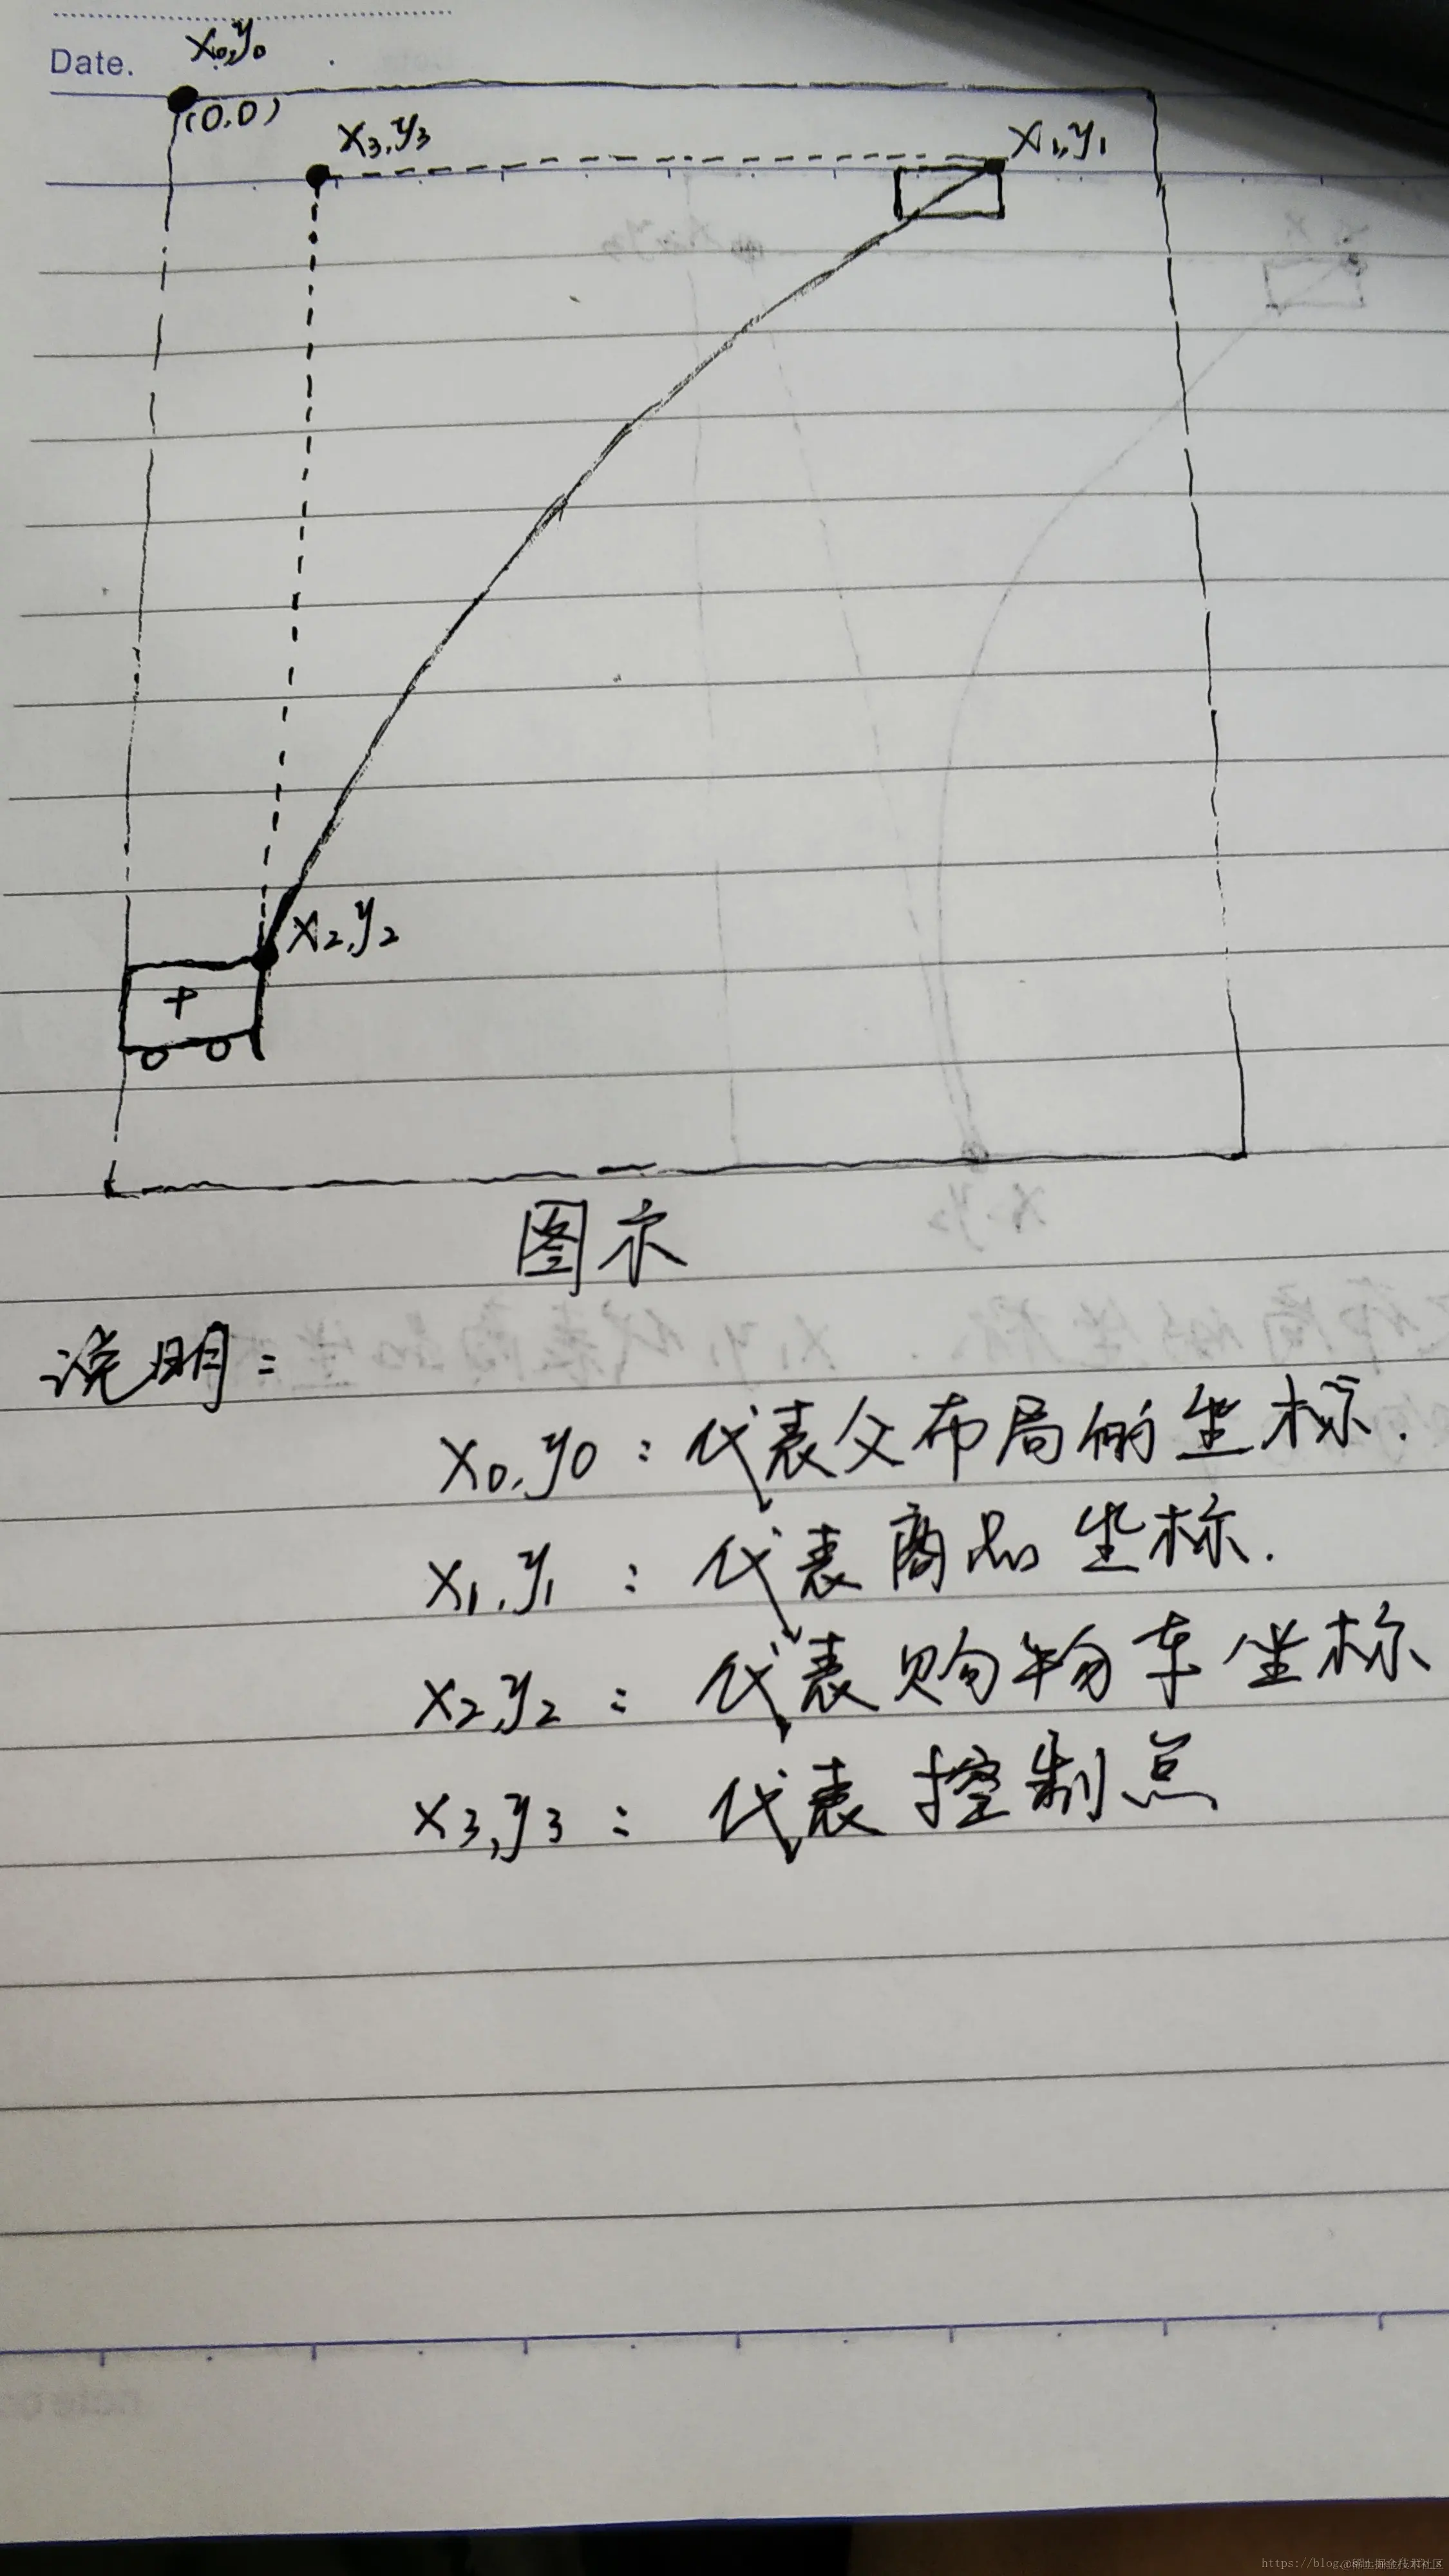 Date.
x0,y0
(0,0)
x3,y3
x1,y1
x2,y2
+
图示
说明:
x0,y0:代表父布局的坐标.
x1,y1:代表商品坐标.
x2,y2:代表购物车坐标
x3,y3:代表控制点